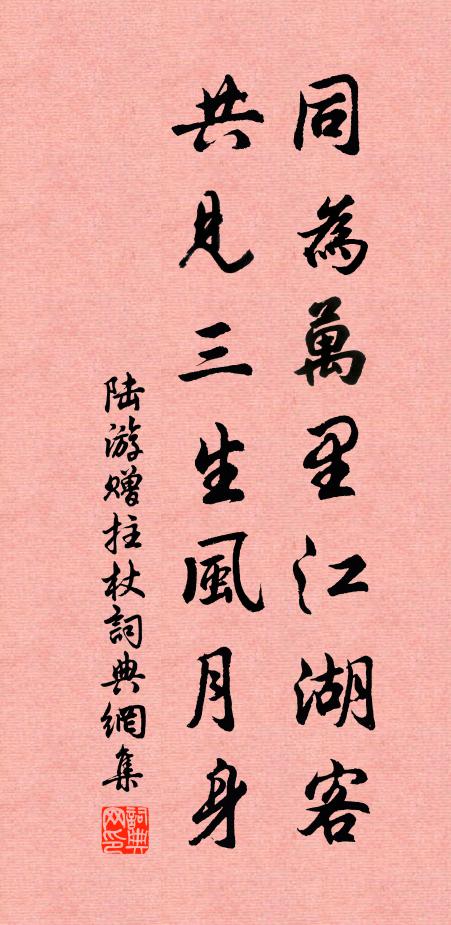 同為萬里江湖客
共見三生風月身
陆游赠拄杖詞典網集
詞典网印